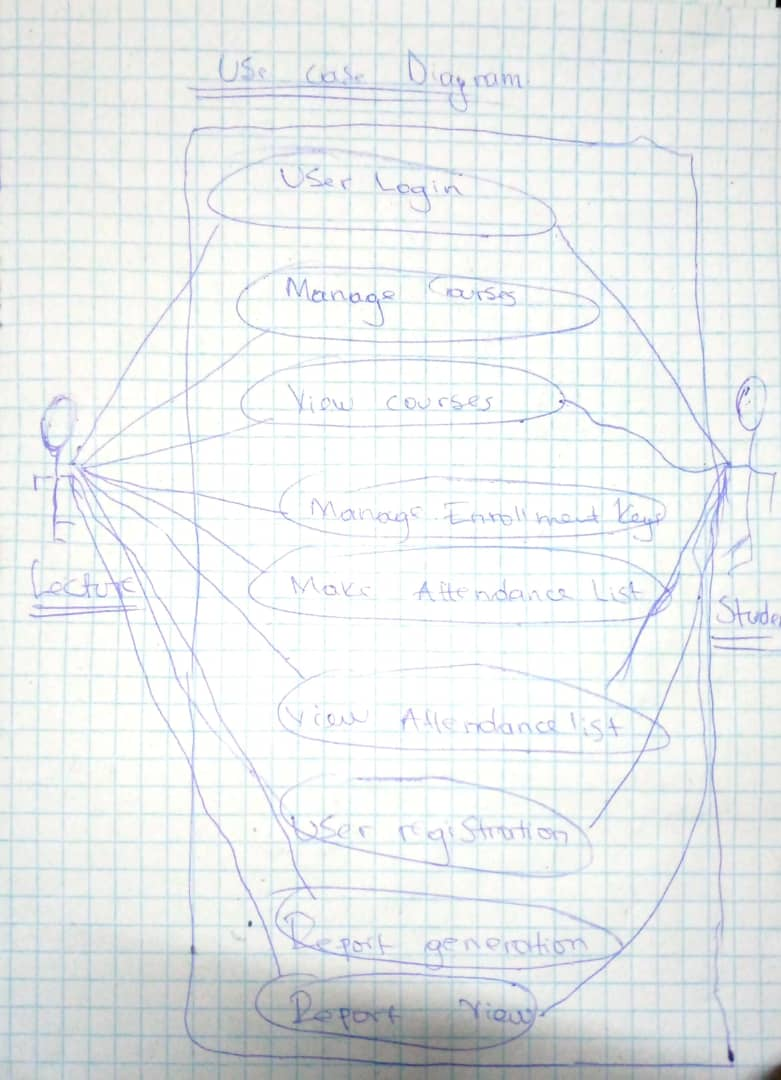 Use case Diagram
User Login
Manage Courses
View courses
Manage Enrollment Keys
Make Attendance List
Lecture
Studen
View Attendance list
User registration
Report generation
Report View